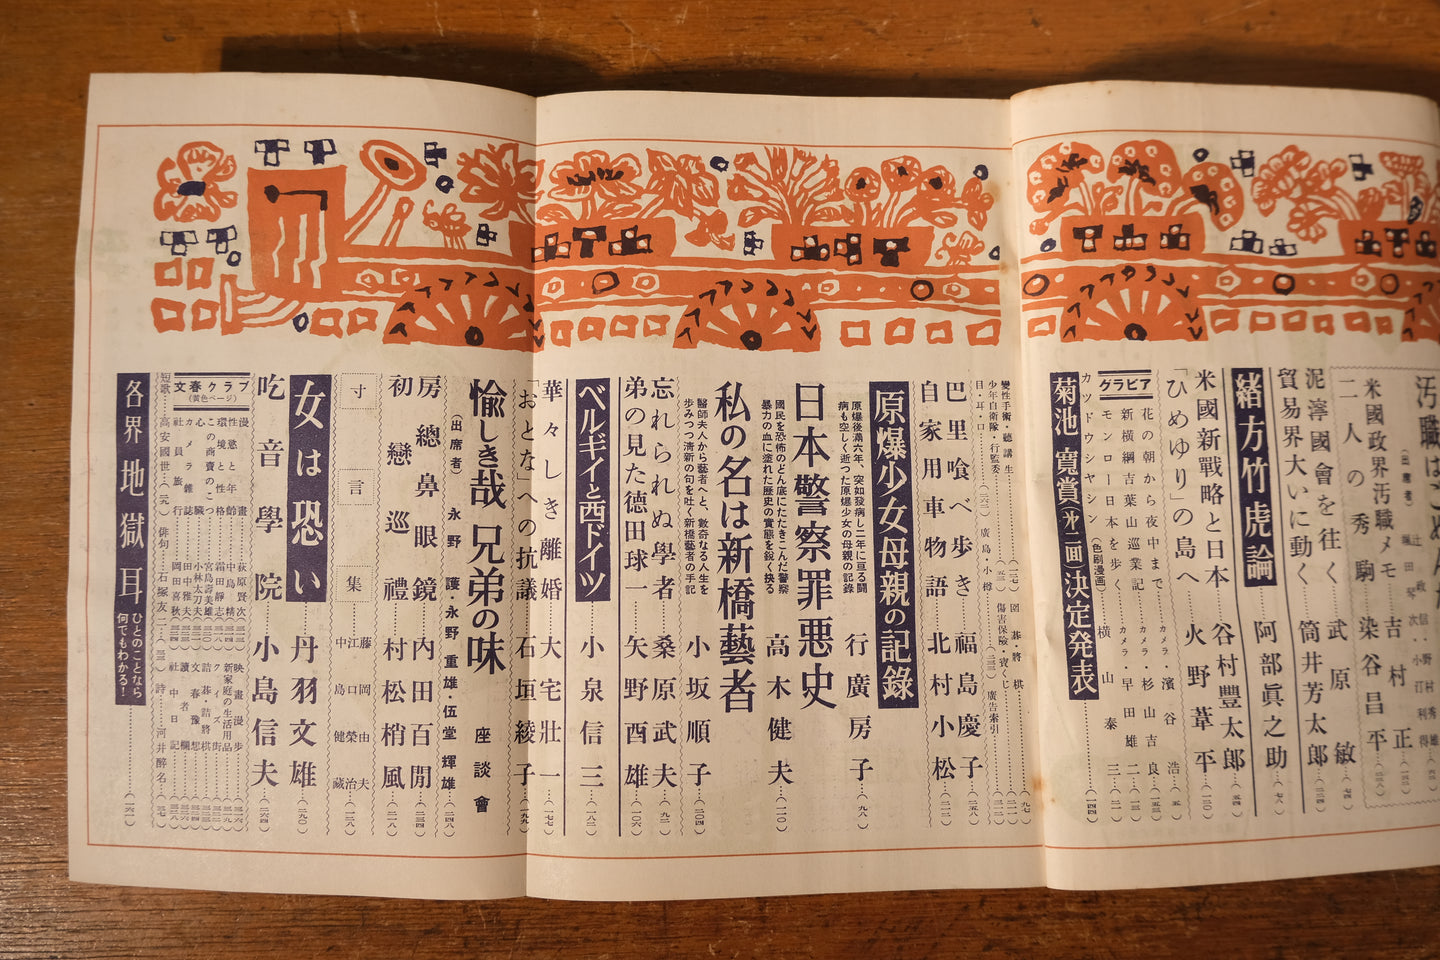 汚職はこめん
（出席者）
米國政界汚職メモ 吉村 正
二人の秀駒 染谷昌平
泥濘國會を往く 武原 敏
貿易界大いに動く 筒井芳太郎
緒方竹虎論 阿部眞之助
米國新戰略と日本 谷村豐太郎
「ひめゆり」の島へ 火野葦平
グラビア
花の朝から夜中まで カメラ・濱谷 浩
新横綱吉葉山巡業記 カメラ・杉山吉良
モンロー日本を歩く カメラ・早田雄二
カツドウシヤシン（色刷漫畫） 横山泰三
菊池寛賞（第二囘）決定発表
變性手術・聽講生
少年自衛隊・行監委
目・耳・口
廣島小樽
圍碁・將棋
傷害保険・寶くじ
廣告索引
巴里喰べ歩き 福島慶子
自家用車物語 北村小松
原爆少女母親の記錄 行廣房子
原爆後滿六年、突如發病し二年に亘る鬪
病も空しく逝つた原爆少女の母親の記錄
日本警察罪惡史 高木健夫
國民を恐怖のどん底にたたきこんだ警察
暴力の血に塗れた歴史の實態を鋭く抉る
私の名は新橋藝者 小坂順子
醫師夫人から藝者へと、數奇なる人生を
歩みつつ清新の句を吐く新橋藝者の手記
忘れられぬ學者 桑原武夫
弟の見た德田球一 矢野酉雄
ベルギイと西ドイツ 小泉信三
華々しき離婚 大宅壯一
「おとな」への抗議 石垣綾子
愉しき哉 兄弟の味 座談會
（出席者） 永野 護・永野重雄・伍堂輝雄
房總鼻眼鏡 内田百閒
初戀巡禮 村松梢風
寸言集
藤岡由夫
江口榮治
中島健藏
女は恐い 丹羽文雄
吃音學院 小島信夫
文春クラブ
（黄色ページ）
漫畫 萩原賢次
性慾と年齢 中島 精
環境と性格 霜田靜志
この商賣のこつ 宮島諄美雄
心臓 小林太刀夫
カメラ雜誌 田中雅夫
社員旅行 岡田喜秋
映畫漫歩
新家庭の生活用品
クイズ街
詰碁・詰將棋
文春豫想
讀者欄
社中日記
短歌 高安國世
俳句 石塚友二
詩 河井醉茗
各界地獄耳
ひとのことなら
何でもわかる！